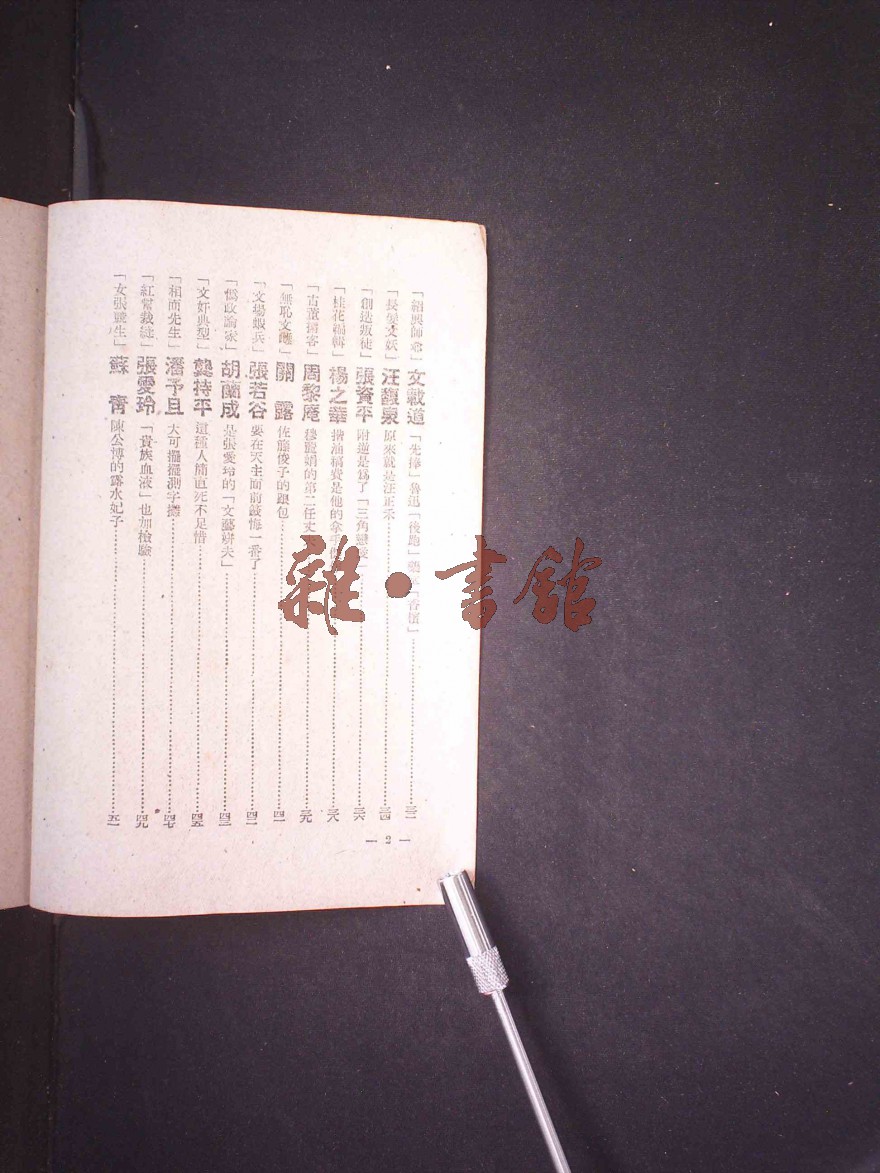 「紹興師爺」文載道 「先捧」魯迅「後跑」 「香檳」………三二
「長髮文妖」汪馥泉 原來就是汪正禾………三四
「創造叛徒」張資平 附逆是爲了「三角戀愛」………三六
「桂花編輯」楊之華 揩油稿費是他的拿………三八
「古董掮客」周黎庵 穆麗娟的第二任丈………三九
「無恥文雌」關露 佐藤俊子的跟包………四一
「文場蝦兵」張若谷 要在天主面前懺悔一番了………四二
「僞政論家」胡蘭成 是張愛玲的「文藝姘夫」………四三
「文奸典型」龔持平 這種人簡直死不足惜………四五
「和而先生」潘予且 大可擺擺測字攤………四七
「紅幫裁縫」張愛玲 「貴族血液」也加檢驗………四九
「女張競生」蘇青 陳公博的露水妃子………五一
— 2 —
雜·書館